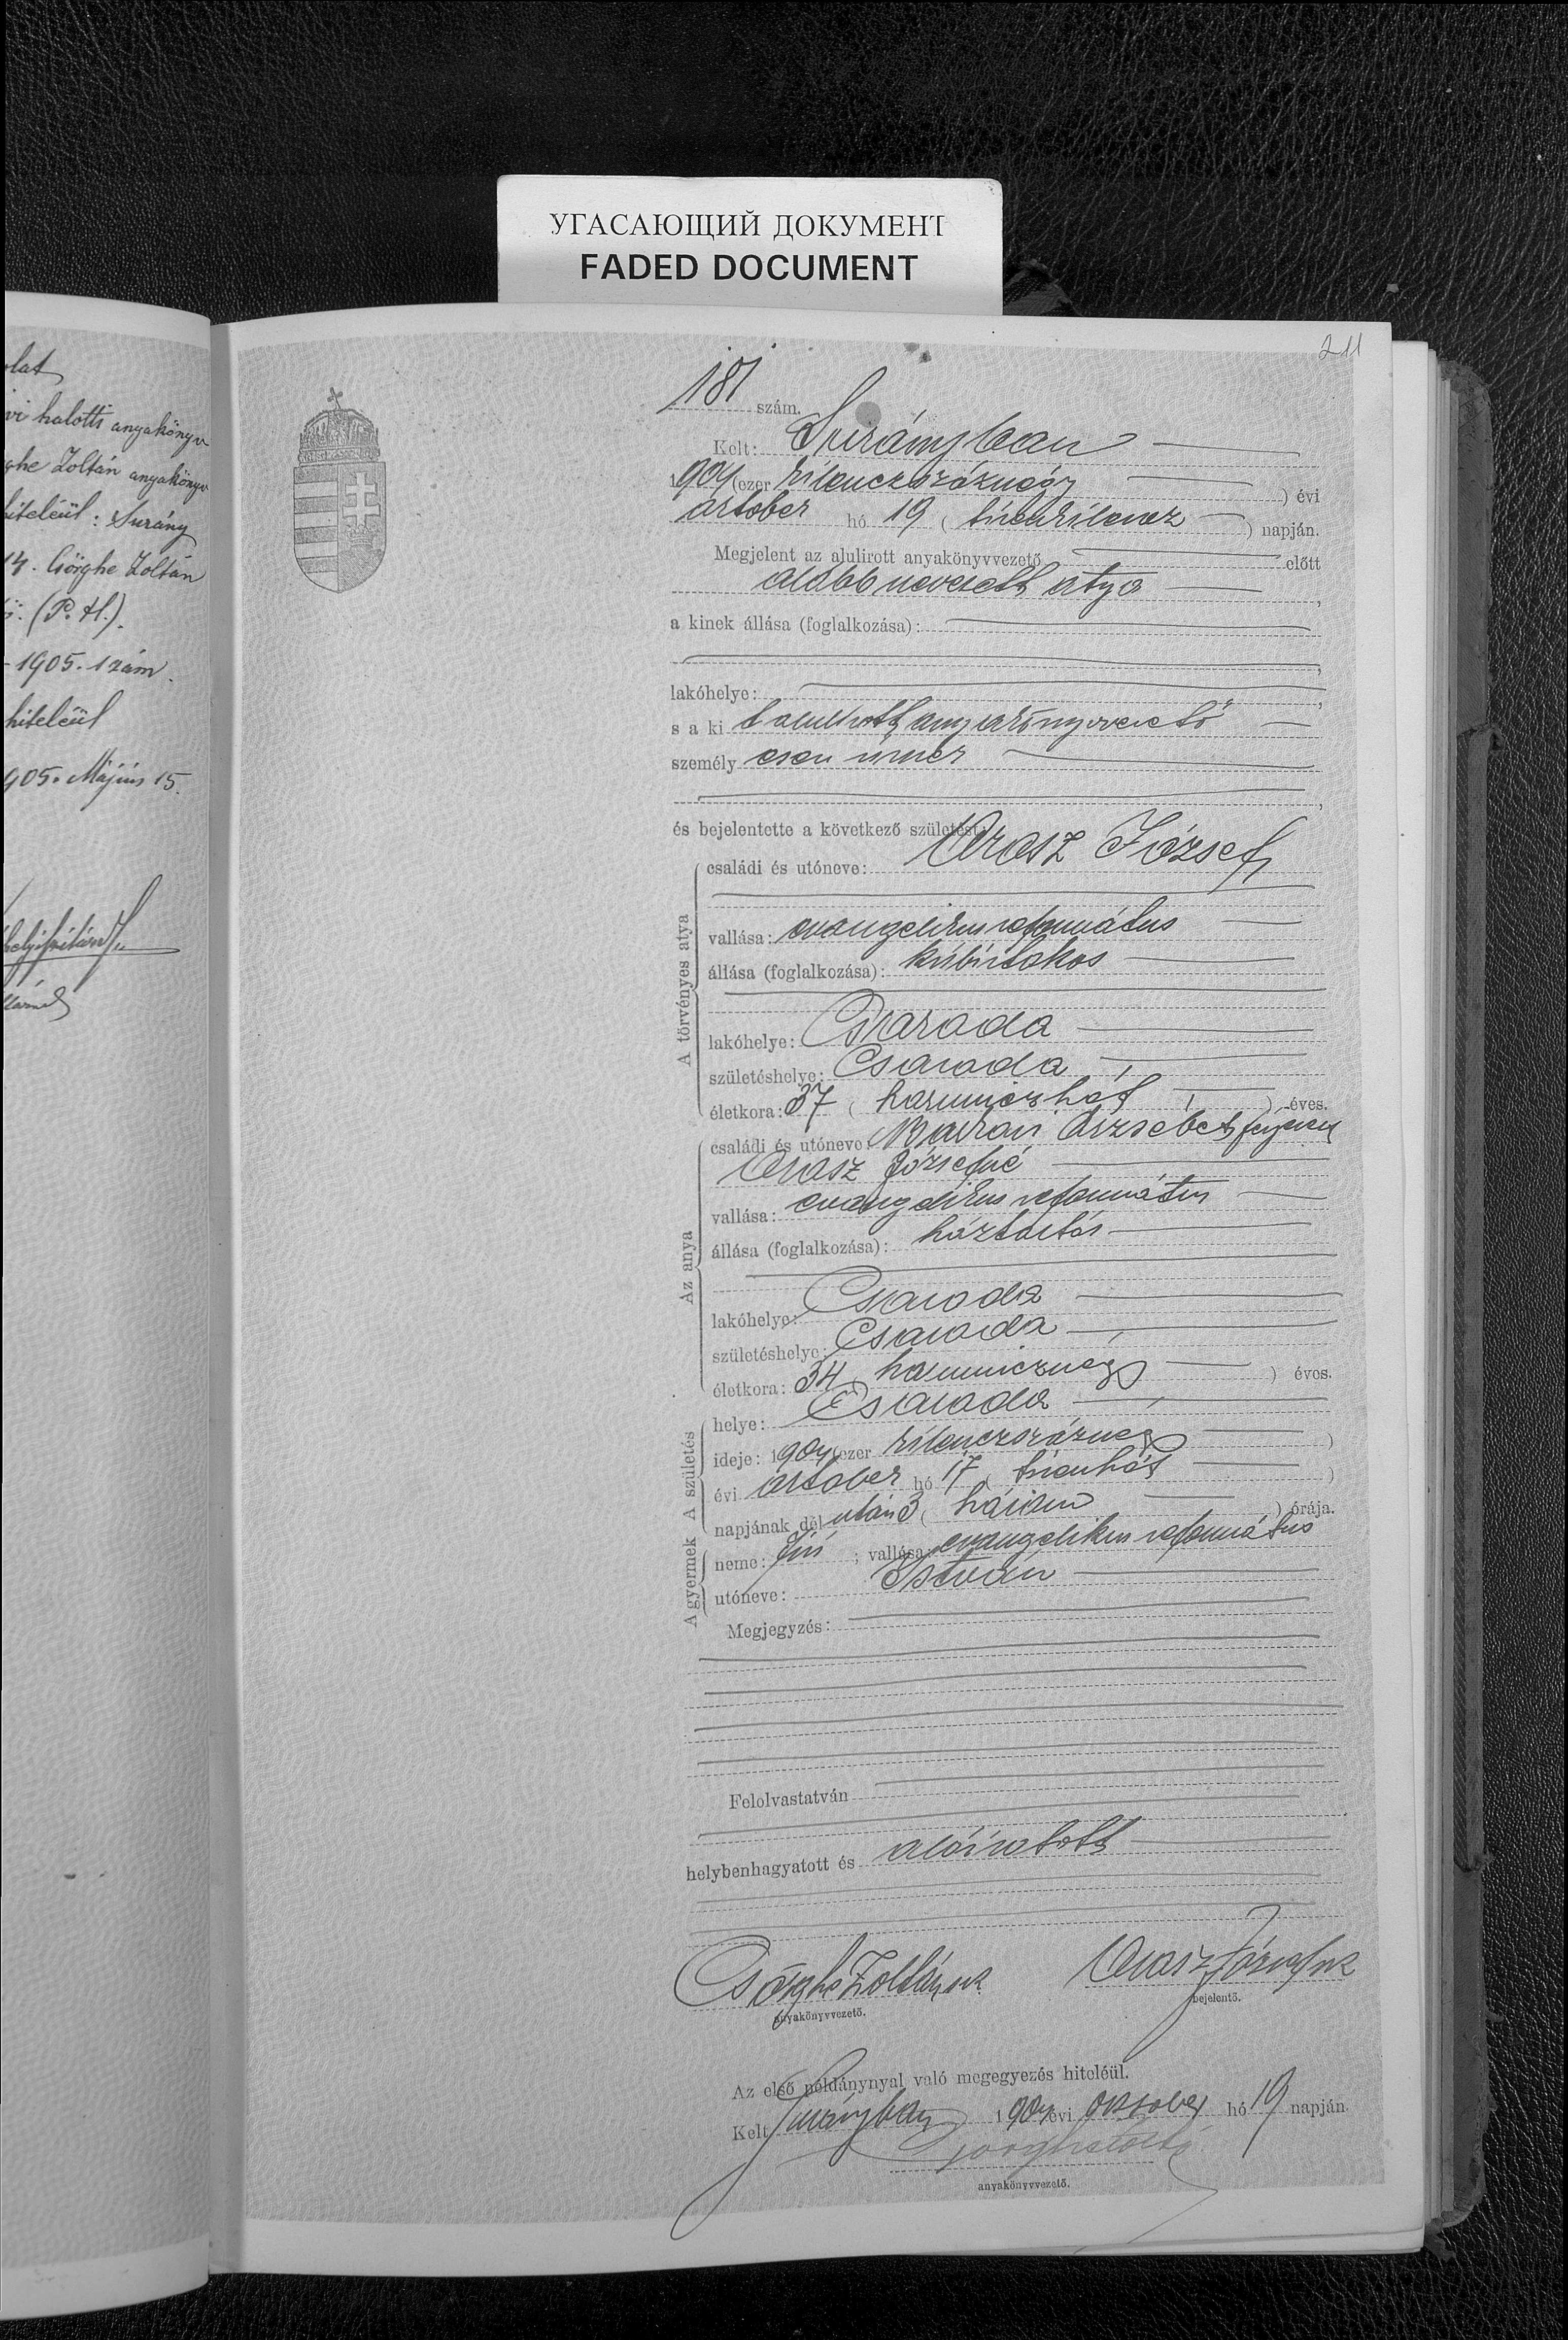 УГАСАЮЩИЙ ДОКУМЕНТ
FADED DOCUMENT
211
lat
vi halotti anyakönyv
ghe Zoltán anyakönyv
hiteléül: Surány
14. Görghe Zoltán
(P. H.).
1905. 1 szám.
hiteléül
905. Május 15.
181 szám.
Kelt: Surányban
1904 (ezer kilenczszáznégy ) évi
october hó 19 ( tizenkilencz ) napján.
Megjelent az alulirott anyakönyvvezető előtt
alább nevezett atya ,
a kinek állása (foglalkozása):
,
lakóhelye: ,
s a ki t alulirott anyakönyvvezető
személy esen ismer
,
és bejelentette a következő születést:
A törvényes atya
családi és utóneve: Orosz József
vallása: evangelikus református
állása (foglalkozása): kisbirtokos
lakóhelye: Csaroda
születéshelye: Csaroda ,
életkora: 37 ( harminczhét ) éves.
Az anya
családi és utóneve: Erzsebet
Orosz Józsefné
vallása: evangelikus református
állása (foglalkozása): háztartás
lakóhelye: Csaroda
születéshelye: Csaroda ,
életkora: 34 harmincznégy ) éves.
A születés
helye: Csaroda ,
ideje: 1904 (ezer kilenczszáznégy )
évi october hó 17 ( tizenhét )
napjának dél után 3 ( három ) órája.
A gyermek
neme: fiú ; vallása: evangelikus református
utóneve: István
Megjegyzés:
Felolvastatván
helybenhagyatott és aláiratott
Görghe Zoltán sk Orosz József sk
anyakönyvvezető. bejelentő.
Az első példánynyal való megegyezés hiteléül.
Kelt Surányban 1904 évi october hó 19 napján
anyakönyvvezető.